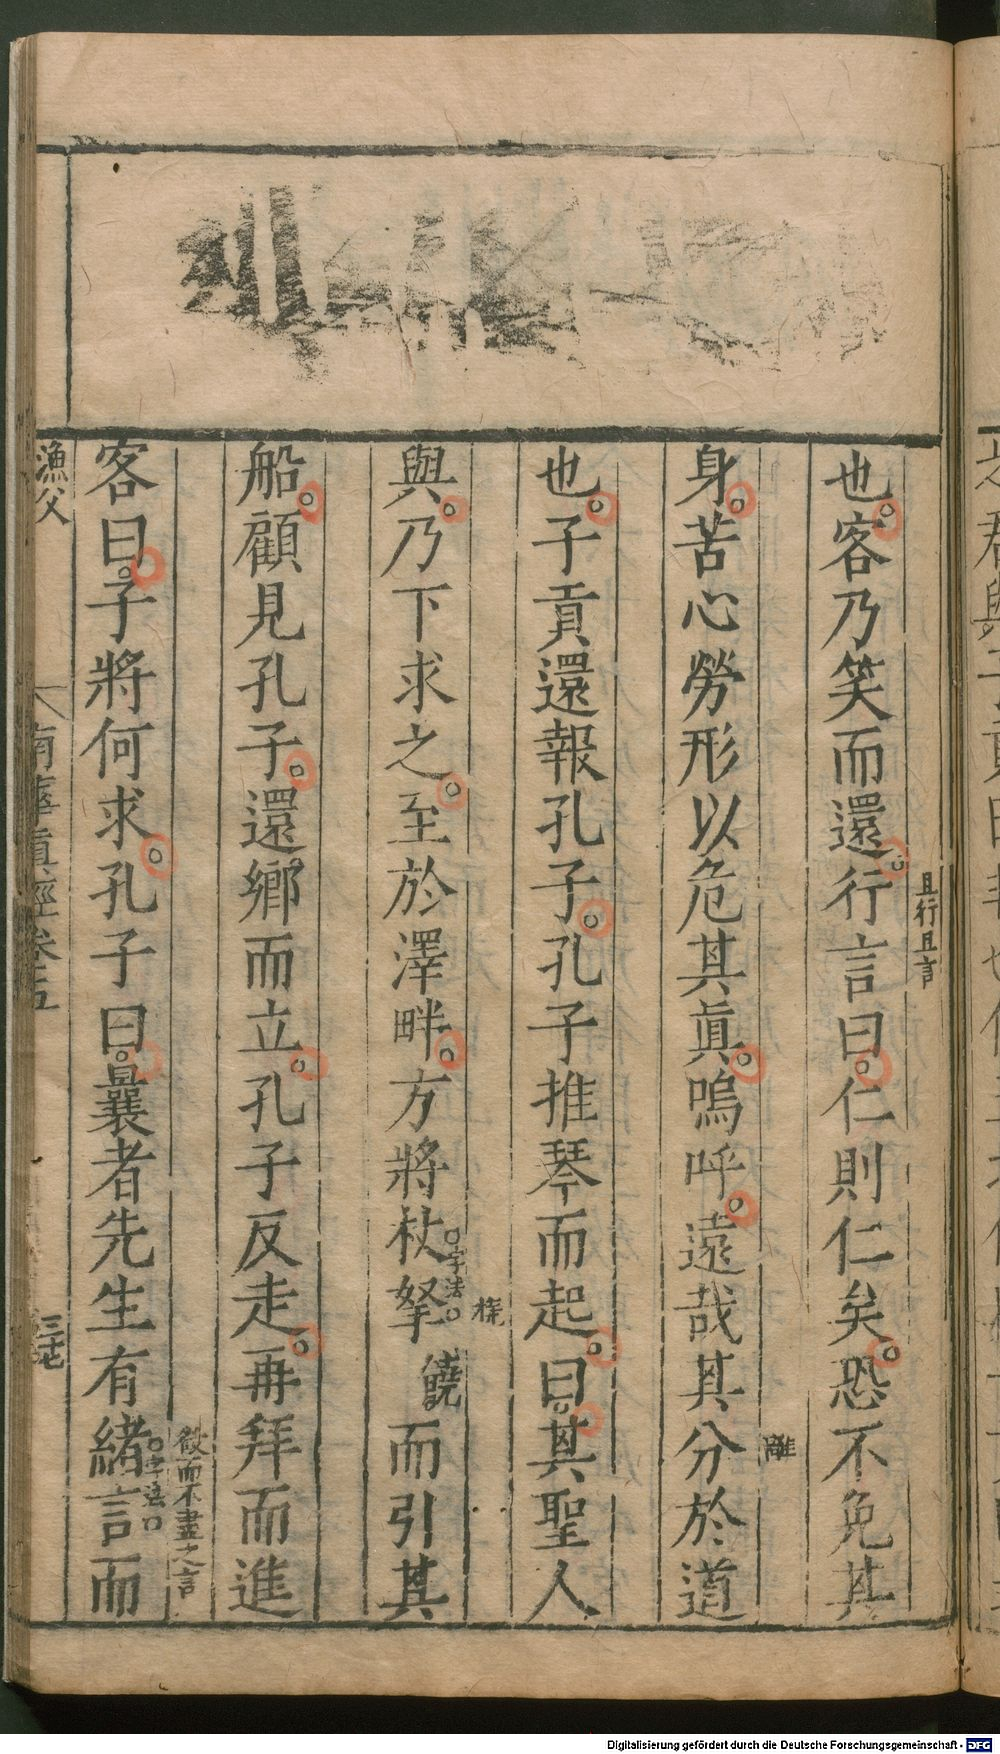 也客乃笑而還行言曰仁則仁矣恐不免其
且行且言
身苦心勞形以危其眞嗚呼遠哉其分於道
離
也子貢還報孔子孔子推琴而起曰其聖人
與乃下求之至於澤畔方將杖拏饒而引其
字法
船顧見孔子還鄉而立孔子反走再拜而進
客曰子將何求孔子曰曩者先生有緒言而
字法
微而不盡之言
漁父
南華眞經卷五
三十七
Digitalisierung gefördert durch die Deutsche Forschungsgemeinschaft - DFG